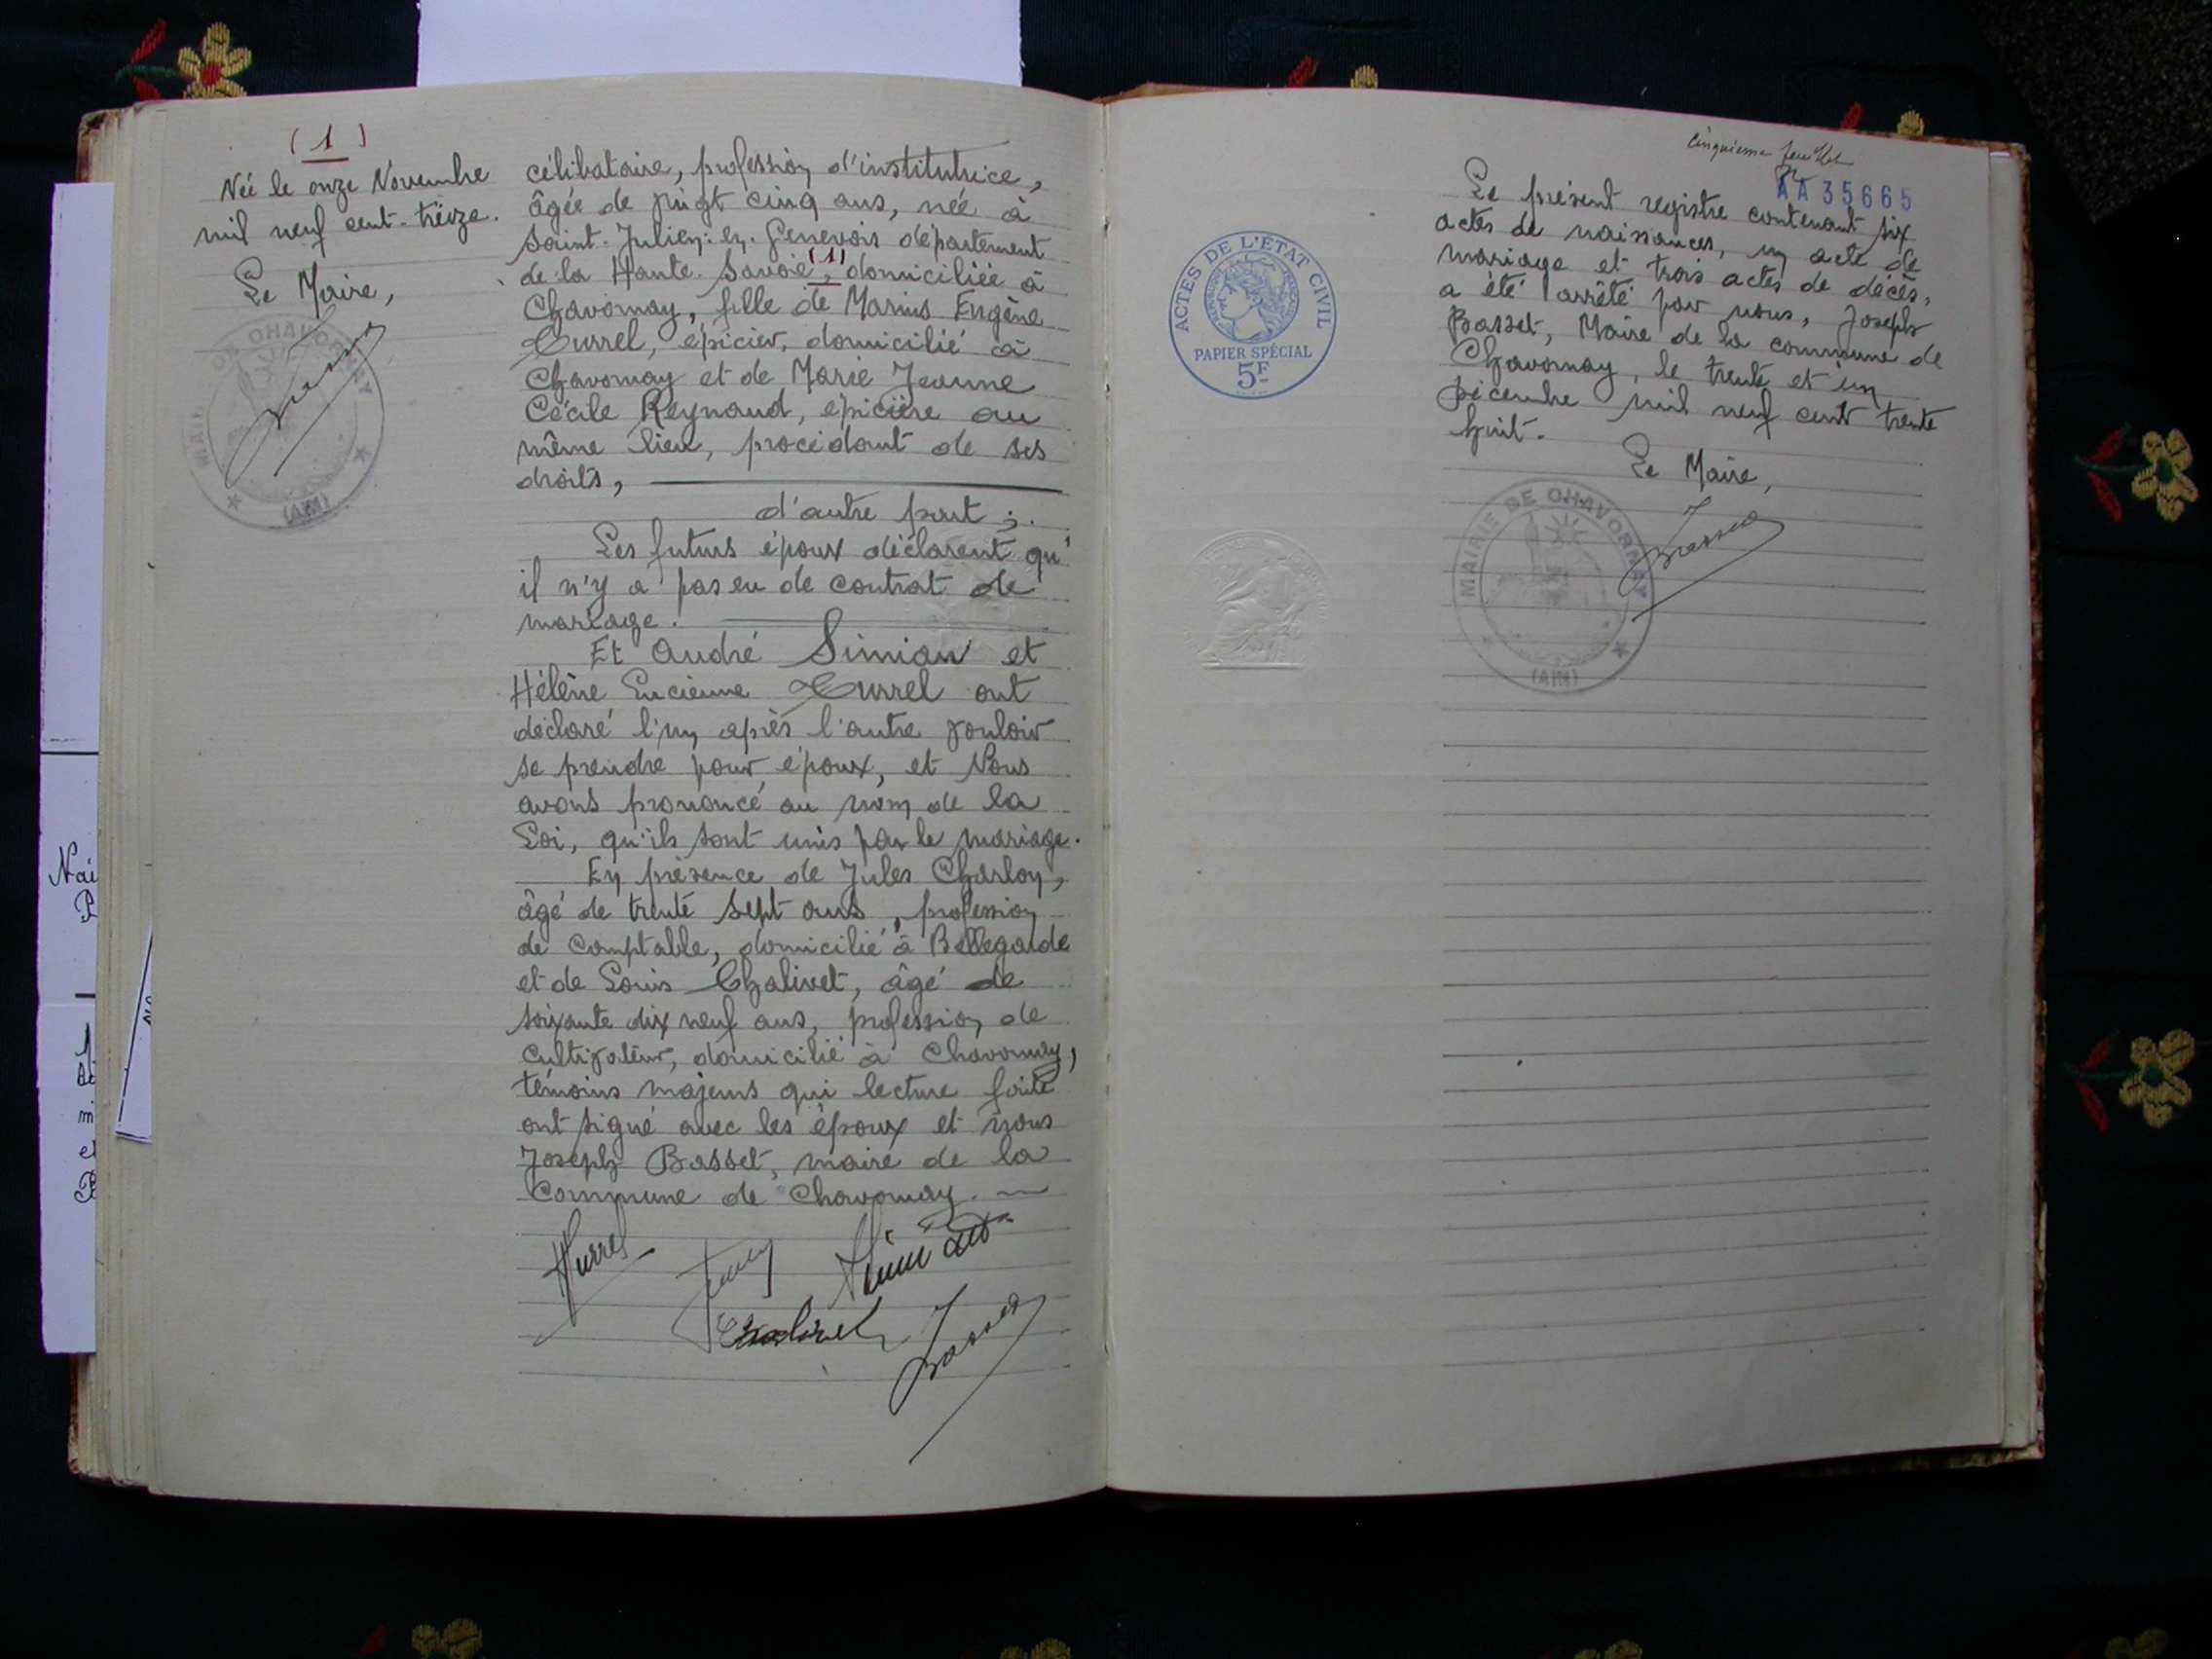 (1)
Née le onze Novembre
mil neuf cent-treize.
Le Maire,
MAIRIE DE CHAVORNAY
(AIN)
célibataire, profession d'institutrice,
âgée de vingt cinq ans, née à
Saint-Julien-en-Genevois département
de la Haute-Savoie (1), domiciliée à
Chavornay, fille de Marius Eugène
Hurrel, épicier, domicilié à
Chavornay et de Marie Jeanne
Cécile Reynaud, épicière au
même lieu, procédant de ses
droits,
d'autre part ;.
Les futurs époux déclarent qu'
il n'y a pas eu de contrat de
mariage.
Et André Simian et
Hélène Lucienne Hurrel ont
déclaré l'un après l'autre vouloir
se prendre pour époux, et Nous
avons prononcé au nom de la
Loi, qu'ils sont unis par le mariage.
En présence de Jules Charloy,
âgé de trente sept ans, profession
de comptable, domicilié à Bellegarde
et de Louis Chalivet, âgé de
soixante dix neuf ans, profession de
cultivateur, domicilié à Chavornay,
témoins majeurs qui lecture faite
ont signé avec les époux et nous
Joseph Basset, maire de la
Commune de Chavornay.
Hurrel
Simian
Chalivet
J Basset
Cinquième feuillet
AA 35665
Le présent registre contenant six
actes de naissances, un acte de
mariage et trois actes de décès,
a été arrêté par nous, Joseph
Basset, Maire de la commune de
Chavornay, le trente et un
Décembre mil neuf cent trente
huit.
Le Maire,
J Basset
MAIRIE DE CHAVORNAY
(AIN)
ACTES DE L'ÉTAT CIVIL
PAPIER SPÉCIAL
5F
Nai